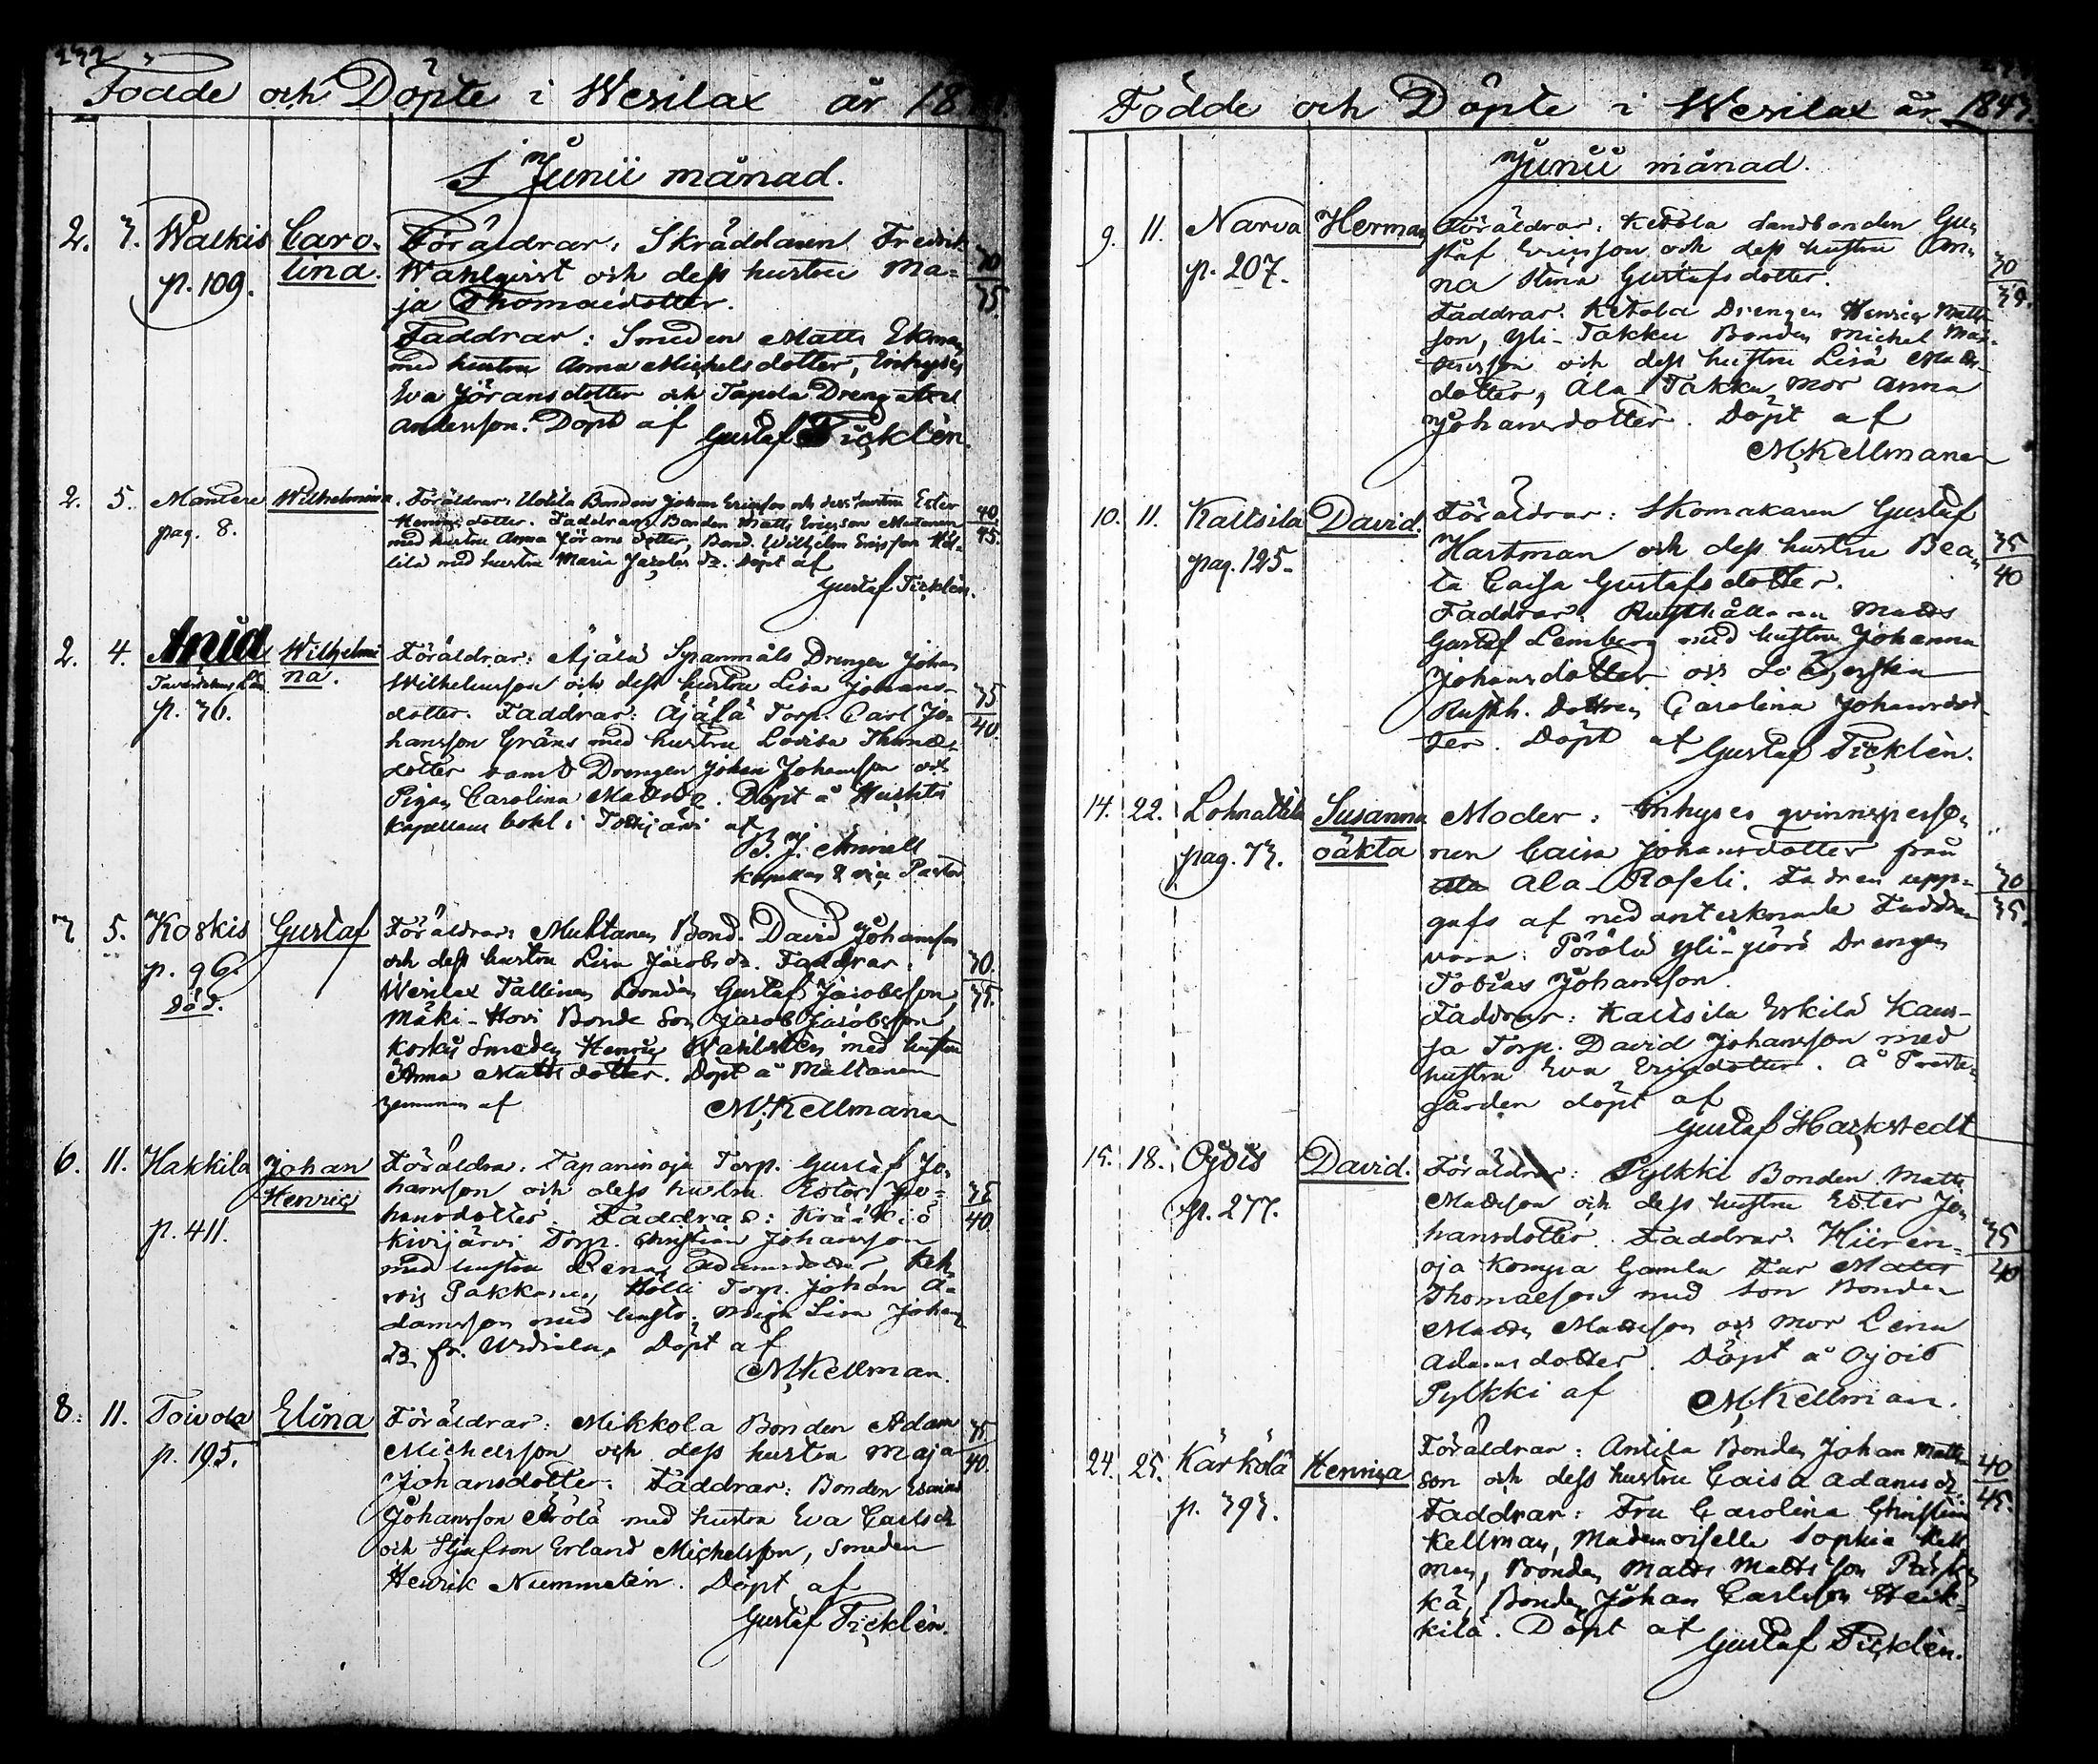 Födde och Döpte i Wesilax år 18
I Junii månad.
2. 3. Walkis Caro- Föräldrar: Skräddaren Fredrik
p. 109. lina. Wahlqvist och dess hustru Ma- 30
ja Thomaedotter. 35.
Faddrar: Smeden Matts Ekman
med hustru Anna Michelsdotter, Inhyses
Eva Jöransdotter och Tapola Dreng
Andersson. Döpt af Gustaf Ticklén.
2. 5. Mantere Wilhelmina. Föräldrar: Uotila Bonden Johan Ericsson och dess hustru Ester 40
pag. 8. Henricsdotter. Faddrar: Bonden Matts Ericsson Mutanen 45.
med hustru Anna Jörans dotter, Bond. Wilhelm Ericsson
lilä med hustru Maria Jacobs dr. Döpt af
Gustaf Ticklén.
2. 4. Ania Wilhelmi Föräldrar: Äjälä Spannmåls Drengen Johan
na. Wilhelmsson och dess hustru Lisa Johans- 35
p. 36. dotter. Faddrar: Äjälä Torp. Carl Jo- 40.
hansson Gräns med hustru Lovisa Thomae
dotter samt Drengen Johan Johansson och
Pigan Carolina Mattsdr. Döpt å
Kapellans bohl i Tottijärvi af
B. J. Aminell
Kapellan & vice Pastor
3. 5. Koskis Gustaf Föräldrar: Muhtanen Bond. David Johansson
p. 96. och dess hustru Lisa Jacobs dr. Faddrar: 30.
Död. Wesilax Tallinen Bonden Gustaf Jacobsson, 35.
Mäki-Hovi Bonde Son Jacob Jacobsson
Koskis Smeden Henric Wahlsten med hustru
Anna Mattsdotter. Döpt å Multanen
hemman af M. Kellman
6. 11. Hakkila Johan Föräldrar: Tapaninoja Torp. Gustaf Jo-
Henric hansson och dess hustru Ester Jo- 35
p. 411. hansdotter Faddrar: Krääkkiö 40.
Kivijärvi Torp. Christian Johansson
med hustru Lena Adamsdotter,
Pakkanen, Hölli Torp. Johan A-
damsson med hustru, Pigan Lisa Johans
dr. fr. Urdiala. Döpt af
M. Kellman.
8. 11. Toivola Elina Föräldrar: Mikkola Bonden Adam 35
p. 195. Michelsson och dess hustru Maja 40.
Johansdotter. Faddrar: Bonden Esaias
Johansson Arölä med hustru Eva Carlsdr
och Styfson Erland Michelsson, Smeden
Henrik Nummelin. Döpt af
Gustaf Ticklén.
Födde och Döpte i Wesilax år 1843.
Junii månad.
9. 11. Narva Herman Föräldrar: Ketola Landbonden Gu-
p. 207. staf Ericsson och dess hustru An- 30
na Stina Gustafsdotter. 35.
Faddrar: Ketola Drengen Henric Matts
son, Yli-Takku Bonden Michel
och dess hustru Lisa Matts
dotter, Ala Takku mor Anna
Johansdotter. Döpt af
M. Kellman
10. 11. Kaltsila David. Föräldrar: Skomakaren Gustaf
pag. 125. Hartman och dess hustru Bea- 35
ta Caisa Gustafsdotter. 40
Faddrar: Rusthållaren Matts
Gustaf Lemberg med hustru Johanna
Johansdotter och
Rusth. Dottren Carolina Johansdot-
ter. Döpt af Gustaf Ticklén.
14. 22. Lohnattila Susanna Moder: Inhyses qvinnsperso-
pag. 73. oäkta nen Caisa Johansdotter från
Ala-Roseli. Fadren upp- 30
gafs af nedanteknade Faddrar 35.
vara: Pörölä Yli-Yiörö Drengen
Tobias Johansson.
Faddrar: Kaltsila Erkilä Kan-
ja Torp. David Johansson med
hustru Eva Ericsdotter. å Preste-
gården döpt af
Gustaf Harkstedt
15. 18. Ojois David. Föräldrar: Pylkki Bonden Matts
p. 277. Mattsson och dess hustru Ester Jo-
hansdotter. Faddrar: Hiiren- 35
oja Kompa Gamla Far Matts 40
Thomaesson med son Bonden
Matts Mattsson och mor Lena
Adamsdotter. Döpt å Ojois
Pylkki af M. Kellman.
24. 25. Kärkölä Henrica Föräldrar: Anttila Bonden Johan Matts
p. 393. son och dess hustru Caisa Adamsdr. 40
Faddrar: Fru Carolina Christina 45.
Kellman, Mademoiselle Sophia Kell
man, Bonden Matts Mattsson
kä, Bonden Johan Carlsson Heik-
kilä. Döpt af Gustaf Ticklén.